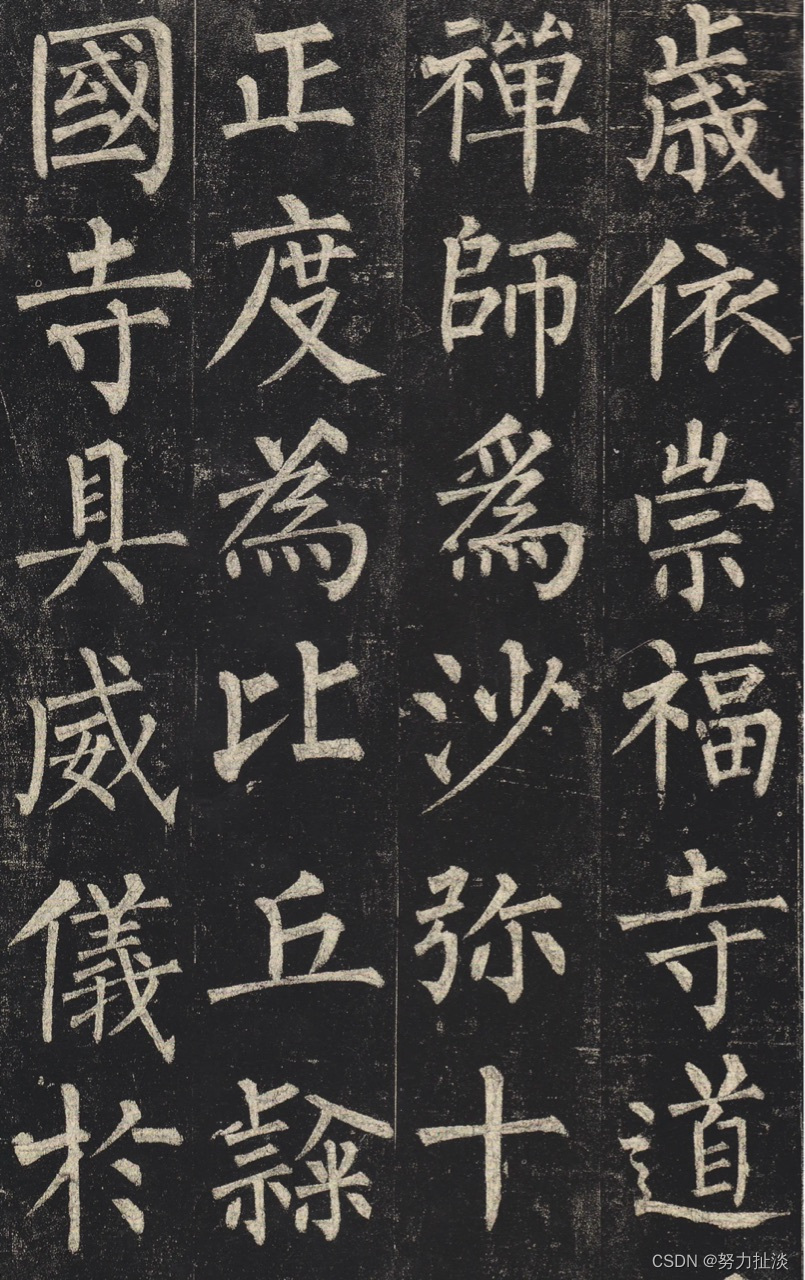 歲依崇福寺道
禪師爲沙弥十
正度為比丘隸
國寺具威儀於
CSDN @努力扯淡